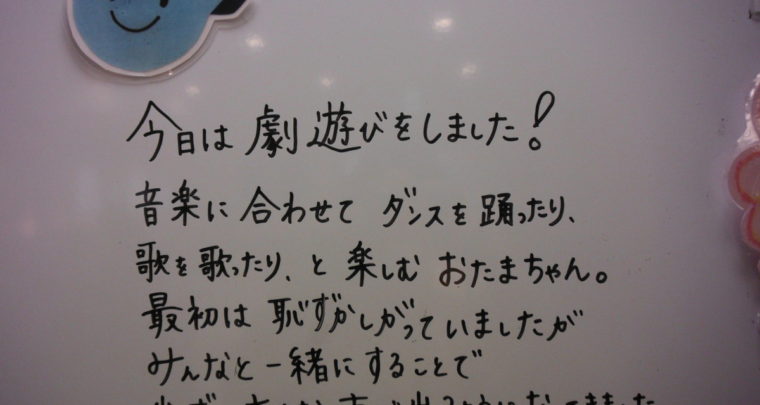 今日は劇遊びをしました!
音楽に合わせてダンスを踊ったり、
歌を歌ったり、と楽しむおたまちゃん。
最初は恥ずかしがっていましたが
みんなと一緒にすることで